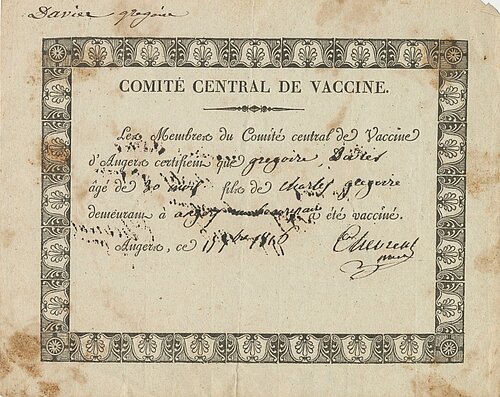 Davier gregoire
COMITÉ CENTRAL DE VACCINE.
Les Membres du Comité central de Vaccine
d'Angers certifient que gregoire Davies
âgé de 30 mois fils de Charles gregoire
demeurant à a été vacciné.
Angers, ce 1816
Chevreul